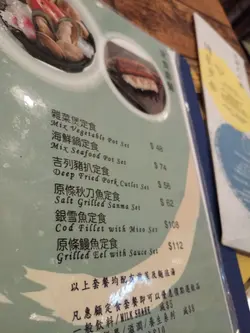 雜菜煲定食
Mix Vegetable Pot Set $ 48
海鮮鍋定食
Mix Seafood Pot Set $ 74
吉列豬扒定食
Deep Fried Pork Cutlet Set $ 56
原條秋刀魚定食
Salt Grilled Sanma Set $ 62
銀雪魚定食
Cod Fillet with Miso Set $108
原條鰻魚定食
Grilled Eel with Sauce Set $112
以上套餐均配
凡惠顧定食套餐即可以優惠價
/MILK SHAKE 減$5